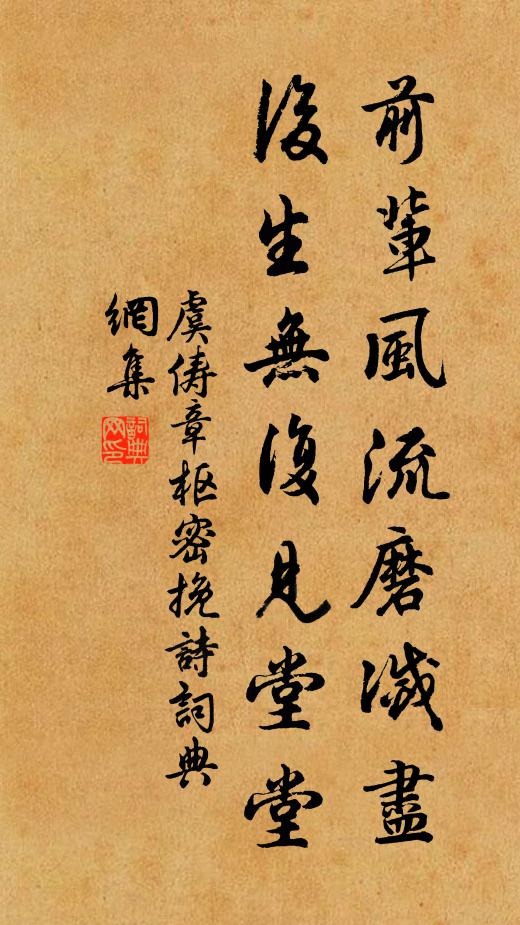 前輩風流磨滅盡
後生無復見堂堂
虞儔章枢密挽詩詞典
網集
詞典
网印